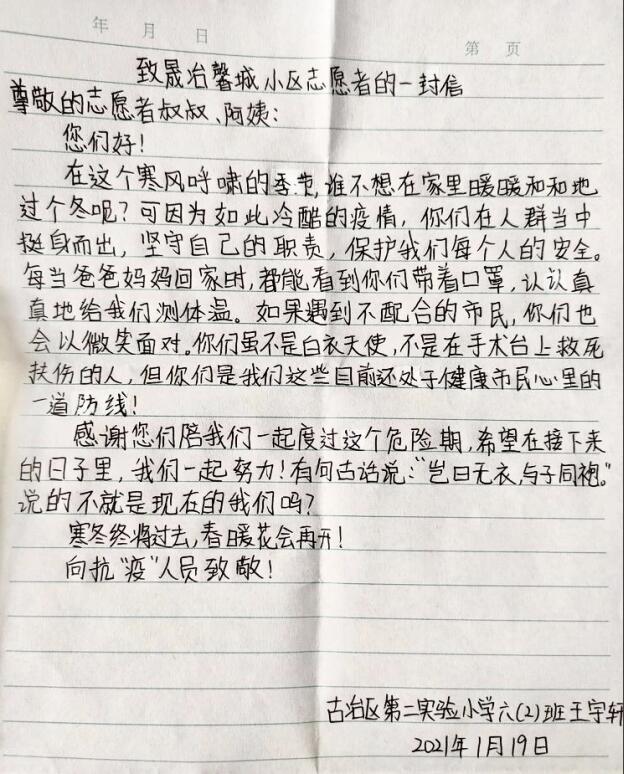 年 月 日
第 页
致晟冶馨城小区志愿者的一封信
尊敬的志愿者叔叔、阿姨：
您们好！
在这个寒风呼啸的季节，谁不想在家里暖暖和和地
过个冬呢？可因为如此冷酷的疫情，你们在人群当中
挺身而出，坚守自己的职责，保护我们每个人的安全。
每当爸爸妈妈回家时，都能看到你们带着口罩，认认真
真地给我们测体温。如果遇到不配合的市民，你们也
会以微笑面对。你们虽不是白衣天使，不是在手术台上救死
扶伤的人，但你们是我们这些目前还处于健康市民心里的
一道防线！
感谢您们陪我们一起度过这个危险期，希望在接下来
的日子里，我们一起努力！有句古话说：“岂曰无衣，与子同袍。”
说的不就是现在的我们吗？
寒冬终将过去，春暖花会再开！
向抗“疫”人员致敬！
古冶区第二实验小学六(2)班王宇轩
2021年1月19日